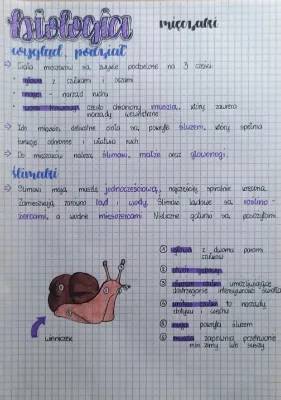 biologia
mięczaki
wygląd, podział
⇒ Ciało mięczaków na zwykle podzielone na 3 części:
• głowa z czułkami i oczami
• noga - narząd ruchu
• worek trzewiowy często chroniony muszlą, który zawiera
narządy wewnętrzne
⇒ Ich miękkie, delikatne ciało jest pokryte śluzem, który spełnia
funkcje ochronne i ułatwia ruch
⇒ Do mięczaków należą ślimaki, małże oraz głowonogi.
ślimaki
⇒ Ślimaki mają muszlę jednoczęściową, najczęściej spiralnie skręconą.
Zamieszkują zarówno ląd i wody. Ślimaki lądowe są roślino-
żercami, a wodne mięsożercami. Nieliczne gatunki są pasożytami.
① głowa z dwoma parami
czułków
② otwór gębowy
③ czułki umożliwiające
dostrzeganie intensywności światła
④ czułki to narządy
dotyku i węchu
⑤ noga pokryta śluzem
⑥ muszla zapewnia przetrwanie
min. zimy lub suszy
winniczek